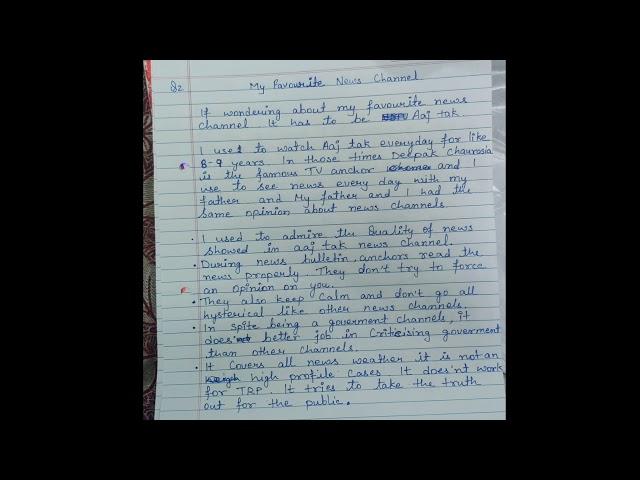 Q2 My Favourite News Channel
If wondering about my favourite news
channel. It has to be Aaj tak.
I used to watch Aaj tak everyday for like
8-9 years. In those times Deepak Chaurosia
is the famous TV anchor and I
use to see news every day with my
father and My father and I had the
same opinion about news channels
• I used to admire the Quality of news
showed in aaj tak news channel.
• During news bulletin, anchors read the
news properly. They don't try to force
an opinion on you.
• They also keep Calm and don't go all
hysterical like other news channels.
• In spite being a goverment channels, it
does better job in Criticising goverment
than other channels.
• It Covers all news weather it is not an
high profile Cases. It does'nt work
for TRP. It tries to take the truth
out for the public.